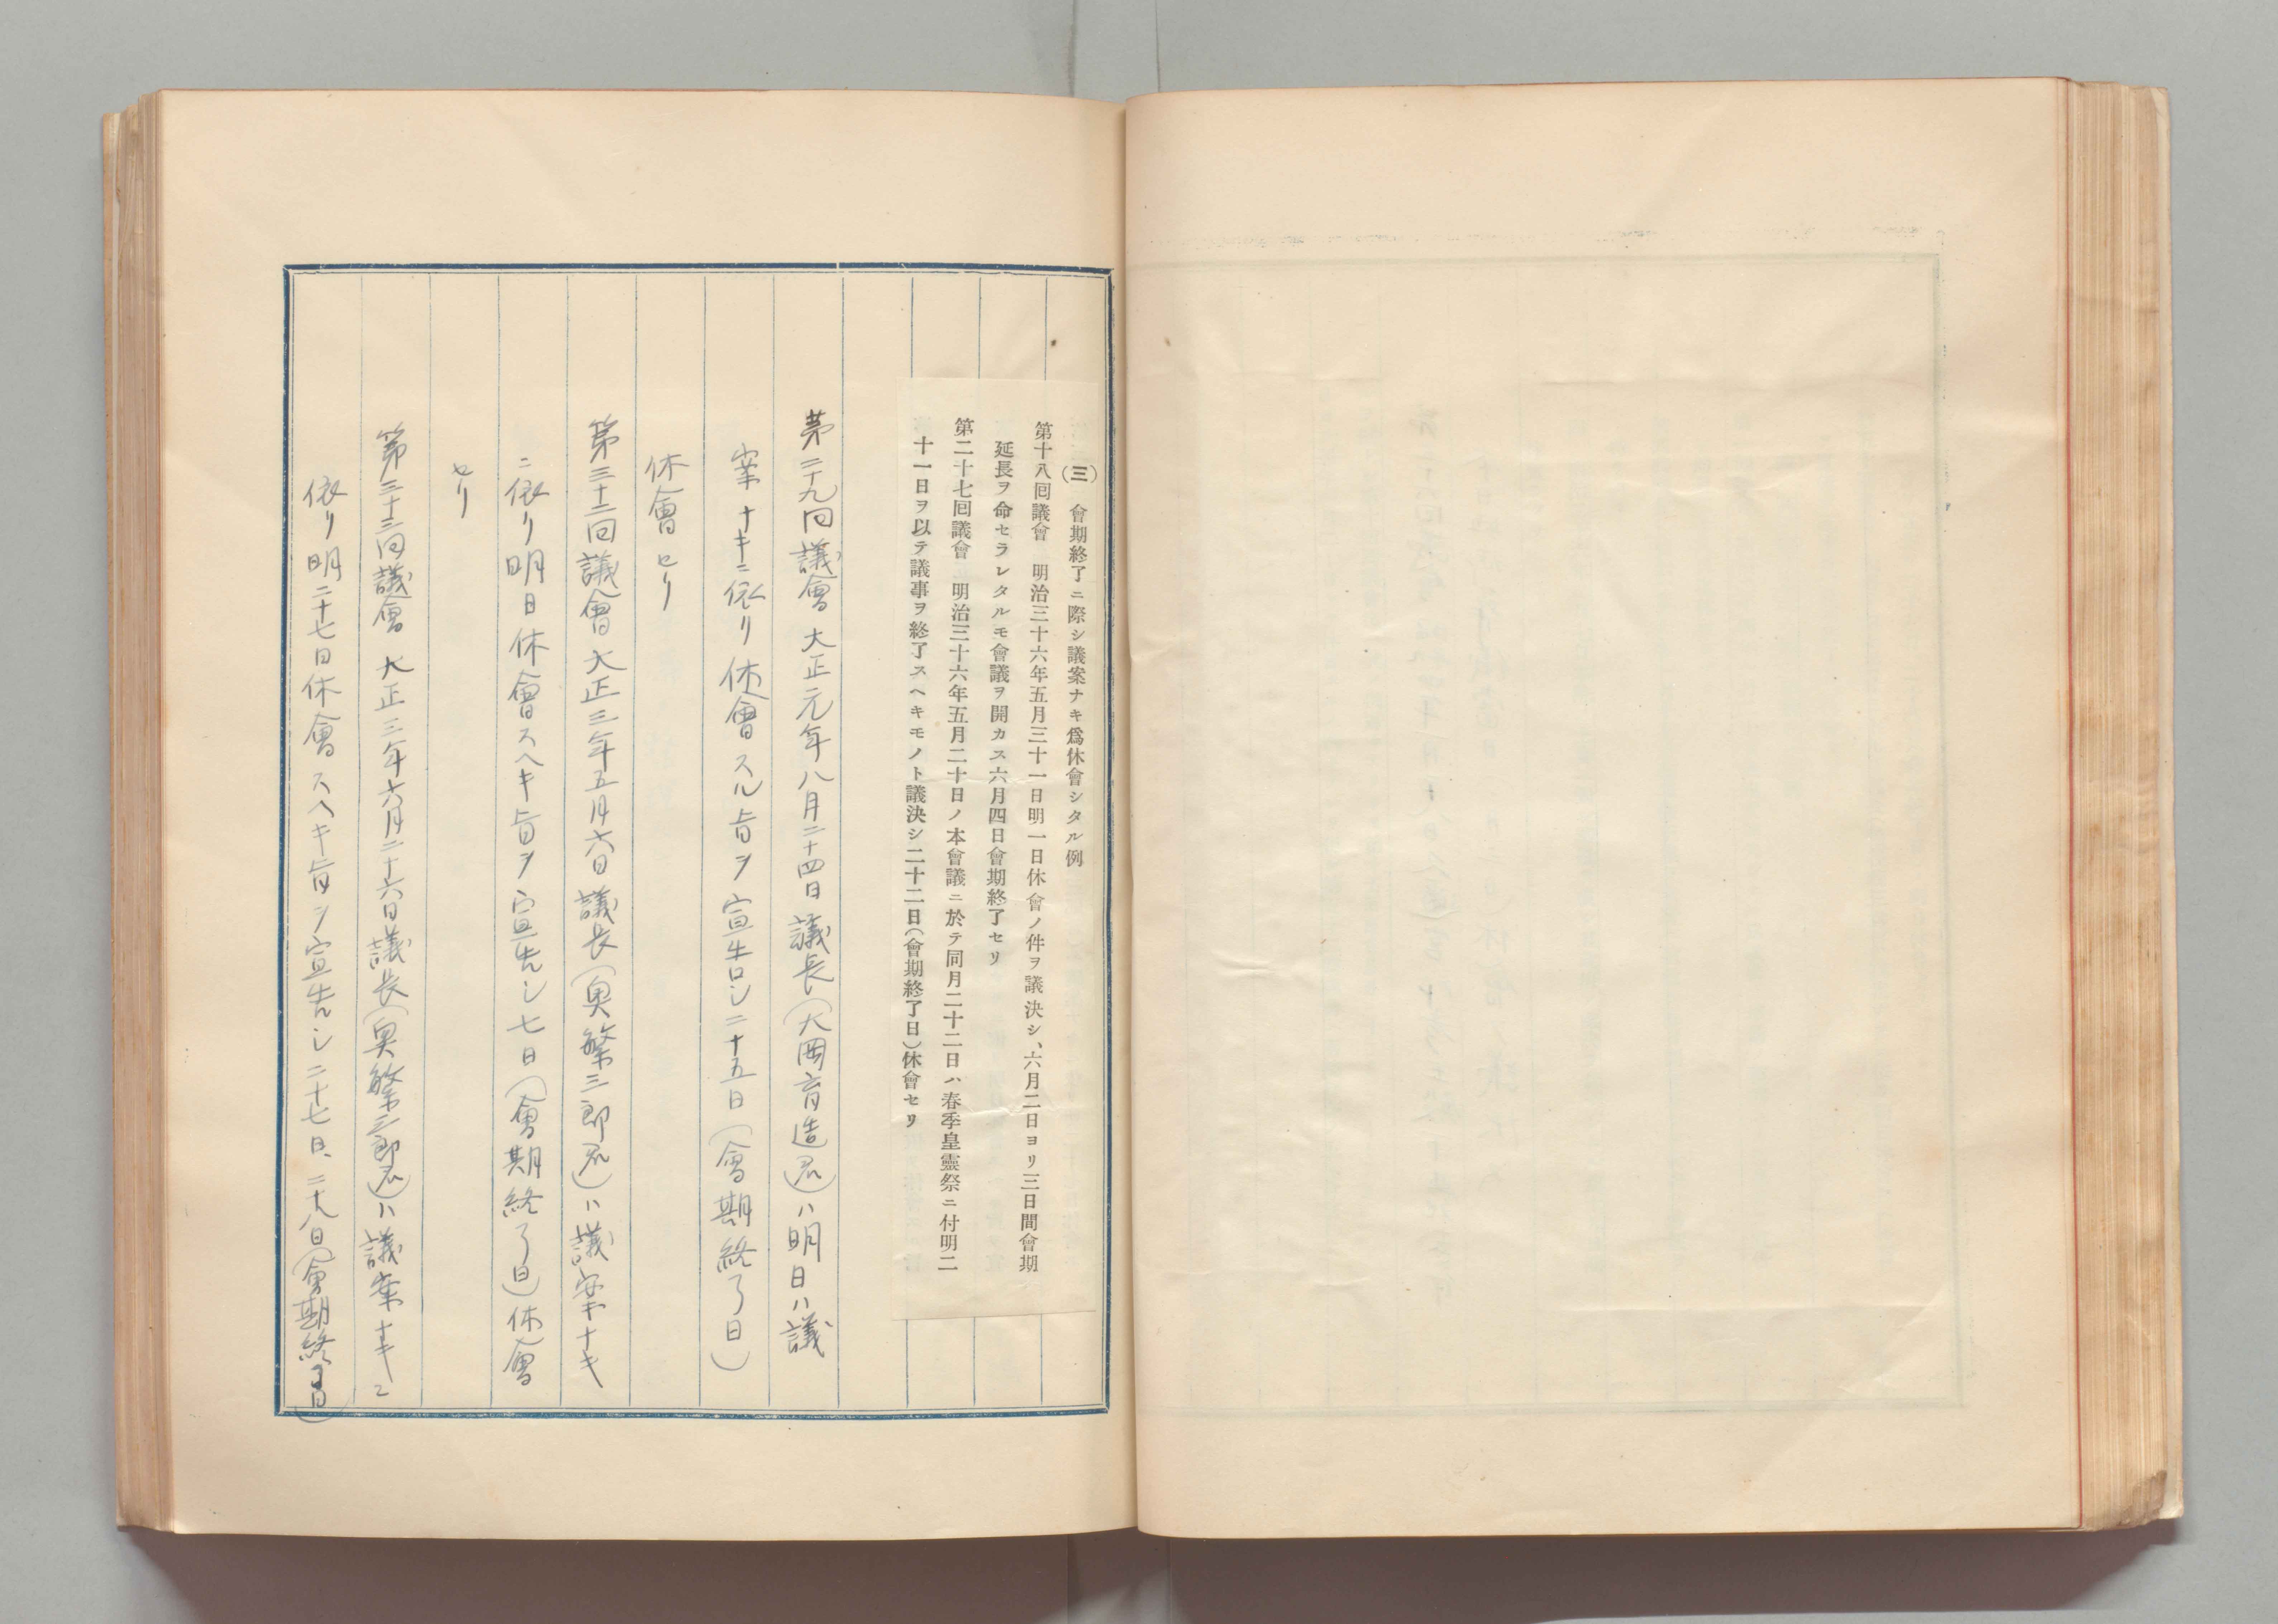 (三)　會期終了ニ際シ議案ナキ爲休會シタル例
第十八囘議會　明治三十六年五月三十一日明一日休會ノ件ヲ議決シ、六月二日ヨリ三日間會期
延長ヲ命セラレタルモ會議ヲ開カス六月四日會期終了セリ
第二十七囘議會　明治三十六年五月二十日ノ本會議ニ於テ同月二十二日ハ春季皇靈祭ニ付明二
十一日ヲ以テ議事ヲ終了スヘキモノト議決シ二十二日(會期終了日)休會セリ
第二十九回議會　大正元年八月二十四日議長(大岡育造君)ハ明日ハ議
案ナキニ依リ休會スル旨ヲ宣告シ二十五日(會期終了日)
休會セリ
第三十二回議會　大正三年五月六日議長(奥繁三郎君)ハ議案ナキ
ニ依リ明日休會スヘキ旨ヲ宣告シ七日(會期終了日)休會
セリ
第三十三回議會　大正三年六月二十六日議長(奥繁三郎君)ハ議案ナキニ
依リ明二十七日休會スヘキ旨ヲ宣告シ二十七日、二十八日(會期終了日)